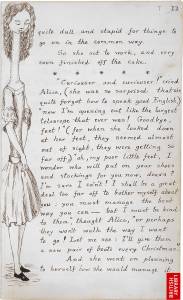 quite dull and stupid for things to
go on in the common way.
So she set to work, and very
soon finished off the cake.
* * * * * *
"Curiouser and curiouser!" cried
Alice, (she was so surprised that she
quite forgot how to speak good English,)
"now I'm opening out like the largest
telescope that ever was! Goodbye,
feet!" (for when she looked down
at her feet, they seemed almost
out of sight, they were getting so
far off,) "oh, my poor little feet, I
wonder who will put on your shoes
and stockings for you now, dears?
I'm sure I can't! I shall be a great
deal too far off to bother myself about
you: you must manage the best
way you can — but I must be kind
to them", thought Alice, "or perhaps
they won't walk the way I want
to go! Let me see: I'll give them
a new pair of boots every Christmas."
And she went on planning
to herself how she would manage it
BRITISH
LIBRARY